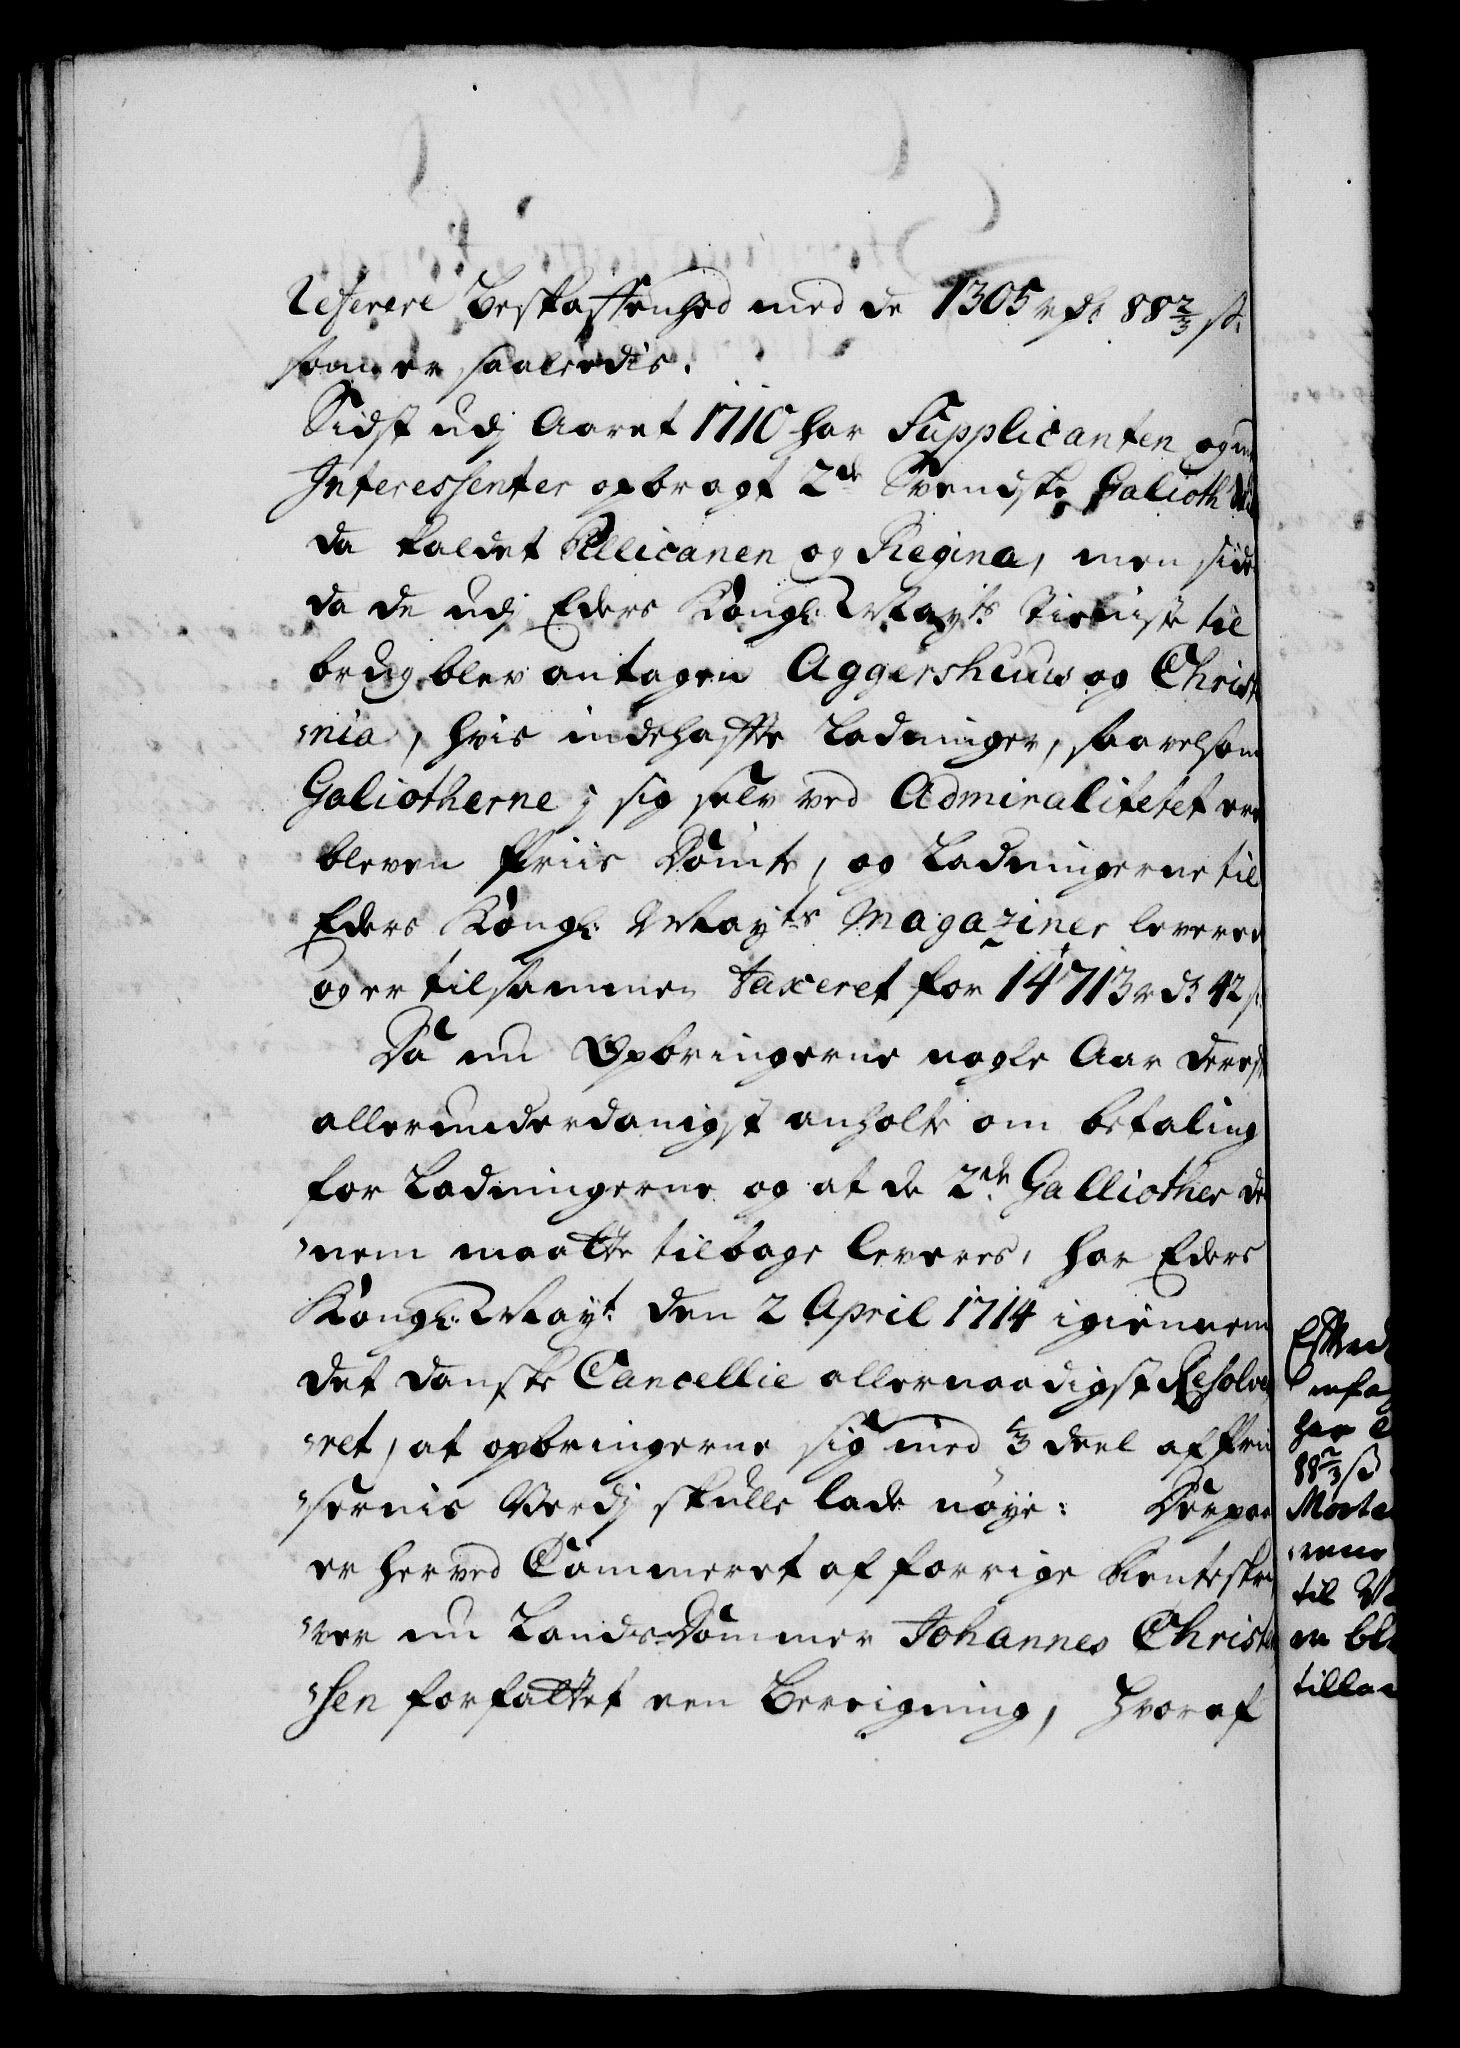 referere beskaffenhed med de 1305 rdr 88 2/3 s:
som er saaledis.
Sidst udj Aaret 1710 har Supplicanten og
Interessenter opbragt 2de Svendske Galioth
da kaldet Pellicanen og Regina, men side
da de udj Eders Kongl: Mayts tieniste til
brug blev antagen Aggershuus og Christ
nia, hvis indehaffte Ladninger, saavelsom
Galiotherne i sig selv ved Admiralitetet ere
bleven Priis dømte, og Ladningerne til
Eders Kongl: Mayts Magaziner levered
og er tilsammen taxeret for 14713 rdr 42 s
Da nu Opbringerne nogle Aar derefft
allerunderdanigst anholte om betaling
for Ladningerne og at de 2de Galliother de
nem maatte tilbage leveres, har Eders
Kongl: Mayt den 2 April 1714 igiennem
det danske Cancellie allernaadigst Resolve
ret, at opbringerne sig med 1/3 deel af Pri
sernis Verdj skulle lade nøye: Derpaa
er herved Cammeret af forrige Renteskri
ver nu Lands-Dommer Johannes Christ
sen forfattet een Bereigning, hvoraf
har
88 2/3 s
til
er